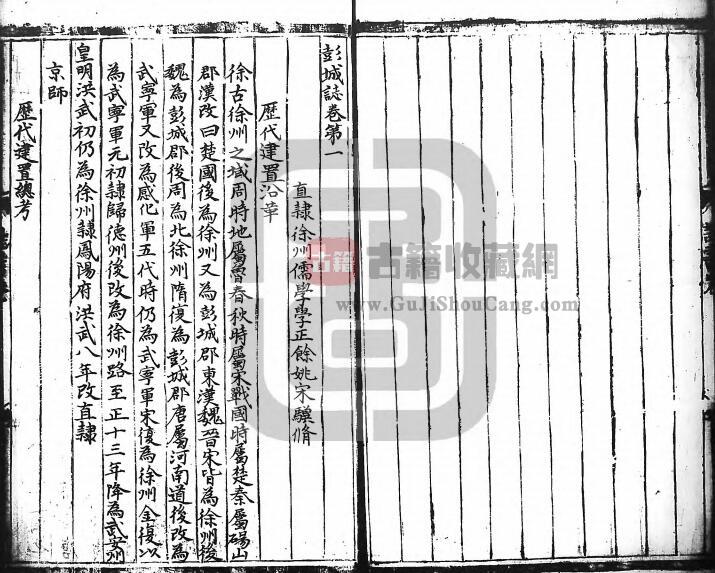 彭城誌卷第一
直隷徐州儒學學正餘姚宋驥脩
歷代建置沿革
徐古徐州之域周時地屬魯春秋時屬宋戰國時屬楚秦屬碭山
郡漢改曰楚國後為徐州又為彭城郡東漢魏晉宋皆為徐州後
魏為彭城郡後周為北徐州隋復為彭城郡唐屬河南道後改為
武寧軍又改為感化軍五代時仍為武寧軍宋復為徐州金復以
為武寧軍元初隷歸德州後改為徐州路至正十三年降為武安州
皇明洪武初仍為徐州隷鳳陽府洪武八年改直隷
京師
歷代建置總考
古籍
古籍收藏网
www.GuJiShouCang.com